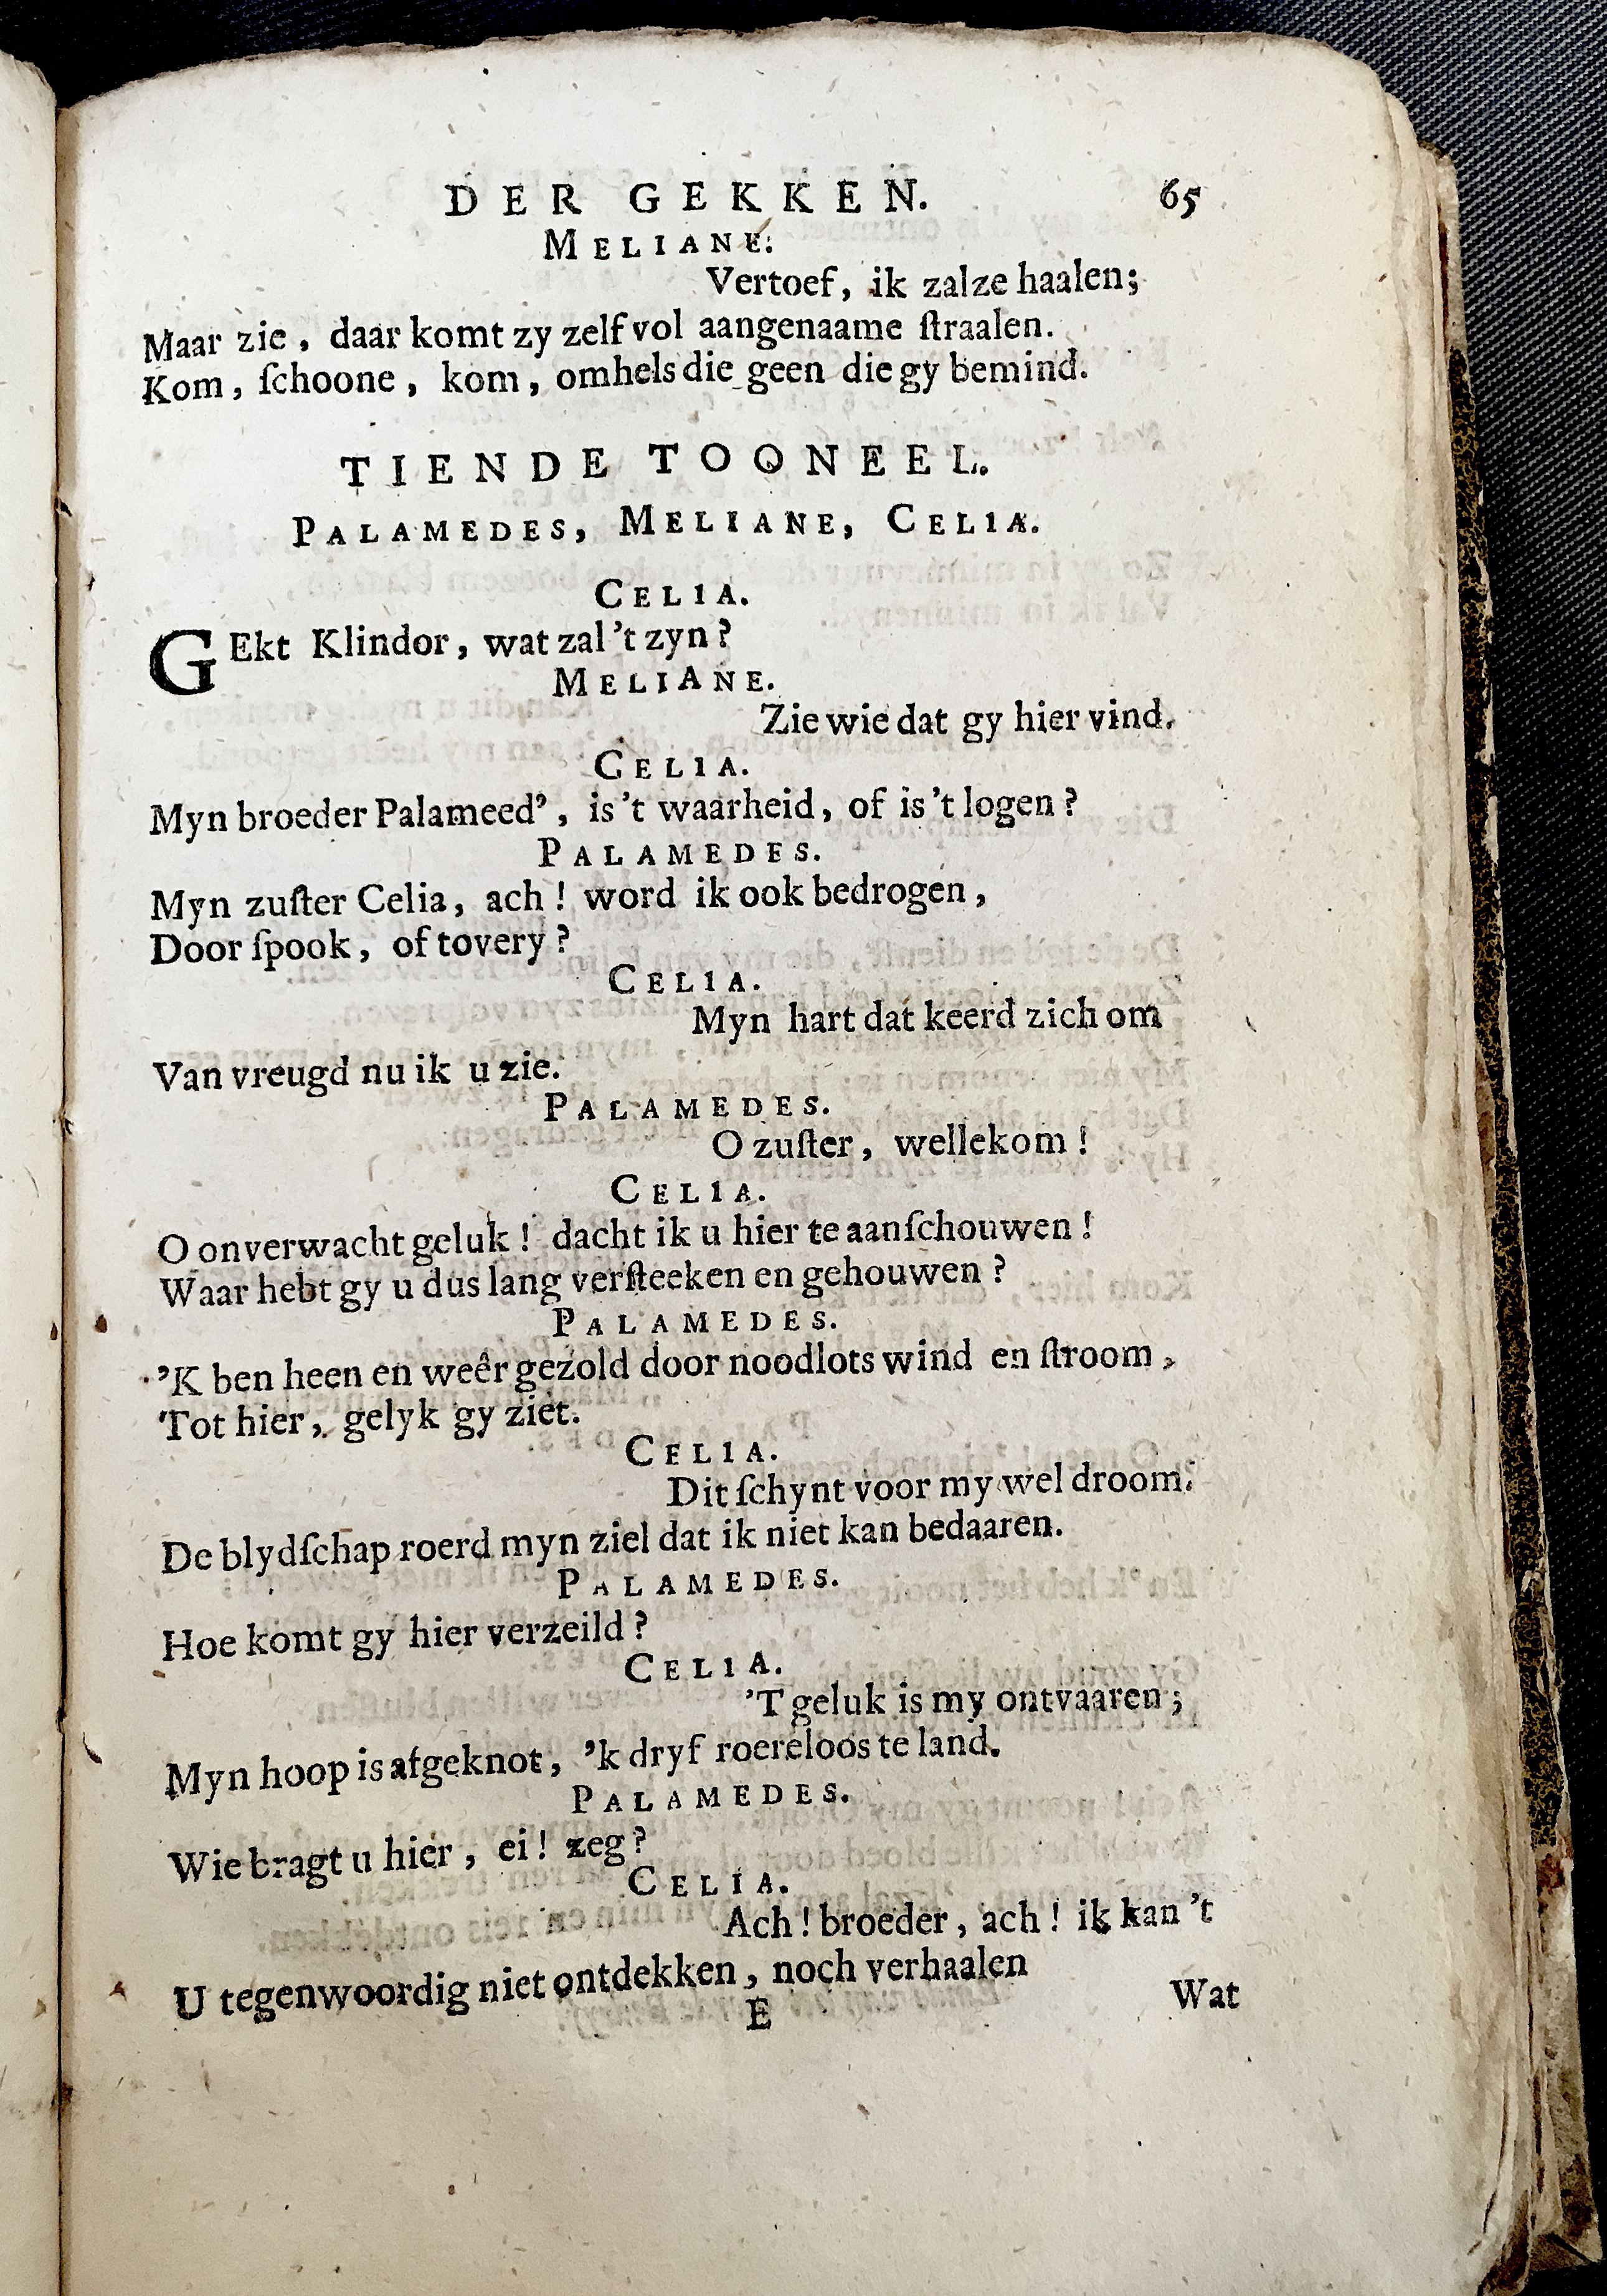 DER GEKKEN. 65
MELIANE.
Vertoef, ik zalze haalen;
Maar zie, daar komt zy zelf vol aangenaame ſtraalen.
Kom, ſchoone, kom, omhels die geen die gy bemind.
TIENDE TOONEEL.
PALAMEDES, MELIANE, CELIA.
CELIA.
GEkt Klindor, wat zal 't zyn?
MELIANE.
Zie wie dat gy hier vind.
CELIA.
Myn broeder Palameed', is 't waarheid, of is 't logen?
PALAMEDES.
Myn zuſter Celia, ach! word ik ook bedrogen,
Door ſpook, of tovery?
CELIA.
Myn hart dat keerd zich om
Van vreugd nu ik u zie.
PALAMEDES.
O zuſter, wellekom!
CELIA.
O onverwacht geluk! dacht ik u hier te aanſchouwen!
Waar hebt gy u dus lang verſteeken en gehouwen?
PALAMEDES.
'K ben heen en weêr gezold door noodlots wind en ſtroom,
Tot hier, gelyk gy ziet.
CELIA.
Dit ſchynt voor my wel droom.
De blydſchap roerd myn ziel dat ik niet kan bedaaren.
PALAMEDES.
Hoe komt gy hier verzeild?
CELIA.
'T geluk is my ontvaaren;
Myn hoop is afgeknot, 'k dryf roereloos te land.
PALAMEDES.
Wie bragt u hier, ei! zeg?
CELIA.
Ach! broeder, ach! ik kan 't
U tegenwoordig niet ontdekken, noch verhaalen
E Wat